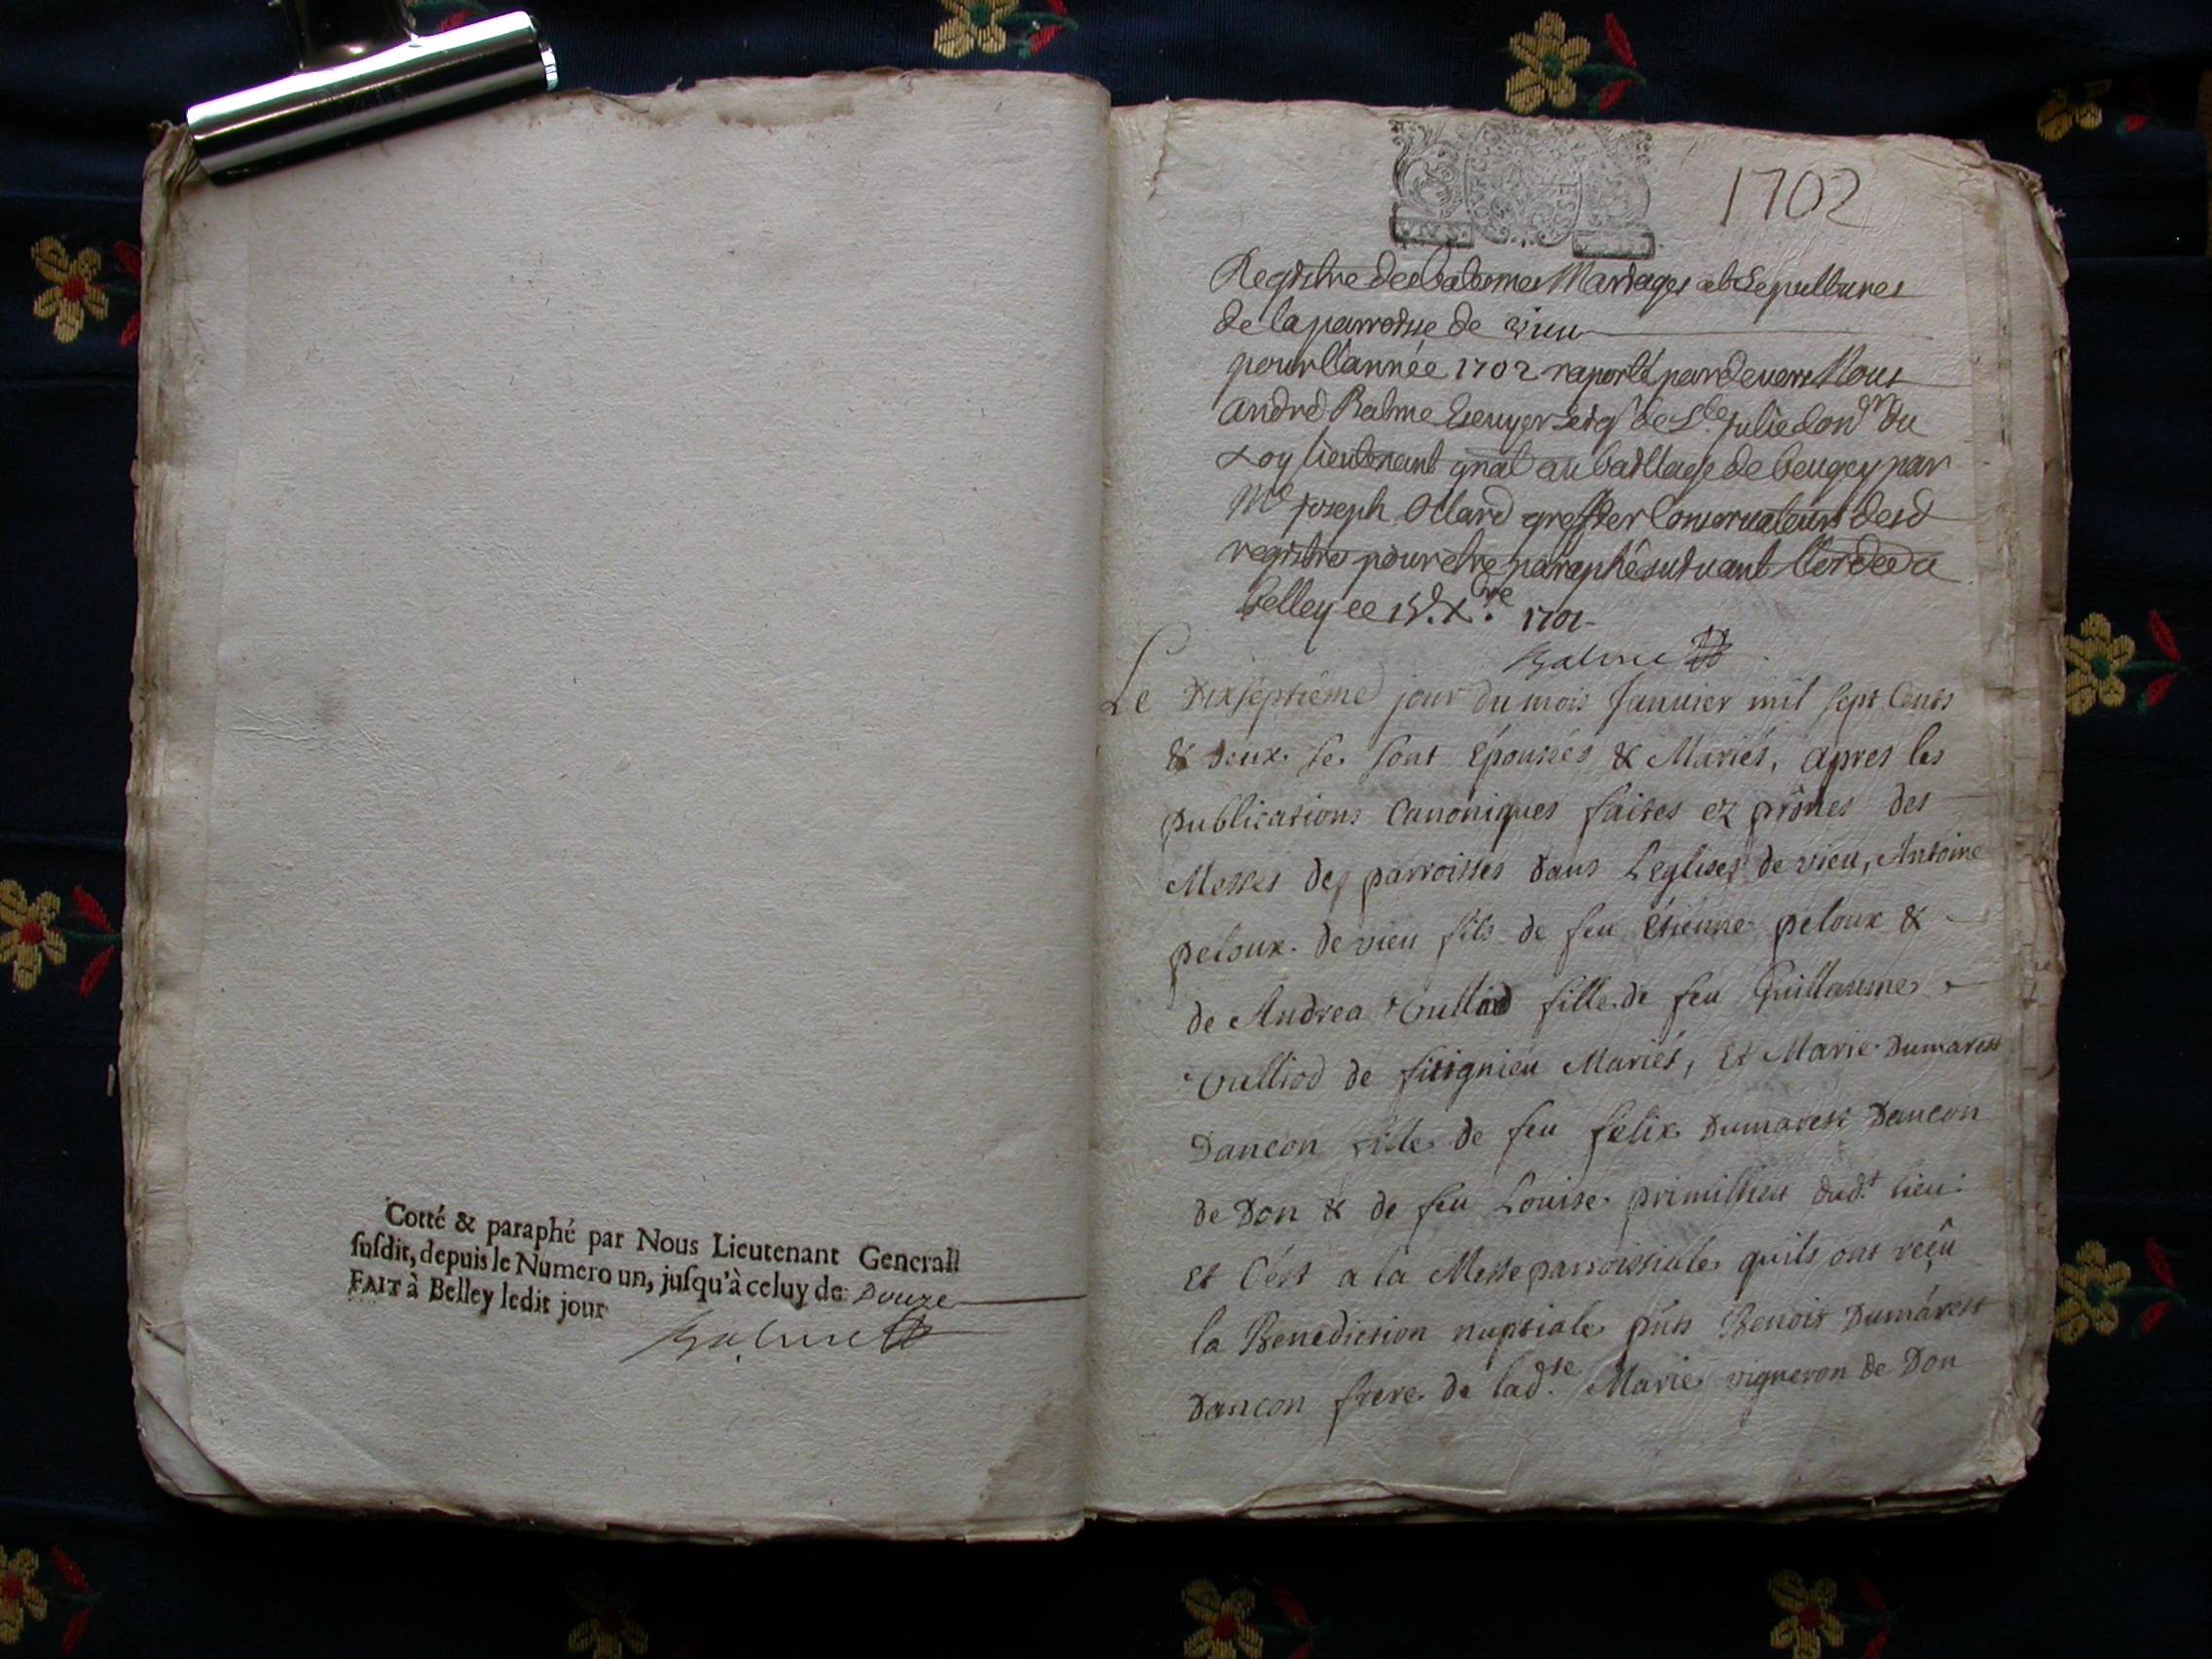 Cotté & paraphé par Nous Lieutenant Generall
ſuſdit, depuis le Numero un, juſqu'à celuy de Douze
FAIT à Belley ledit jour
Balme
1702
Registre des batemes Mariages et Sepultures
de la parroisse de vieu
pour l'année 1702 raporté pardevers Nous
André Balme Escuyer seigr de Ste julie Conër du
Roy lieutenant gnal au bailliage de beugey par
Me joseph greffier Conservateur desd
registres pour etre paraphé suivant
belley ce 15.d Xbre 1701
Balme
Le Dixseptième jour du mois Janvier mil sept Cents
& Deux se sont Épousées & Mariés, apres les
publications Canoniques faites ez prônes des
Messes des parroisses dans Leglises de vieu, Antoine
peloux de vieu fils de feu Etienne peloux &
de Andrea Vulliod fille de feu Guillaume
Vulliod de fitignieu Mariés, Et Marie Dumarest
Dancon fille de feu felix Dumarest Dancon
de Don & de feu Louise primillieu dudt lieu:
Et C'est a la Messe parroissiale quils ont reçû
la Benediction nuptiale pñts Benoit Dumarest
Dancon frere de ladte Marie vigneron de Don